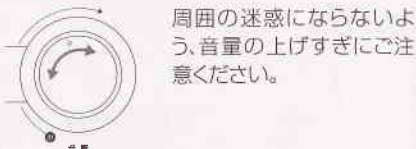 周囲の迷惑にならないよ
う、音量の上げすぎにご注
意ください。